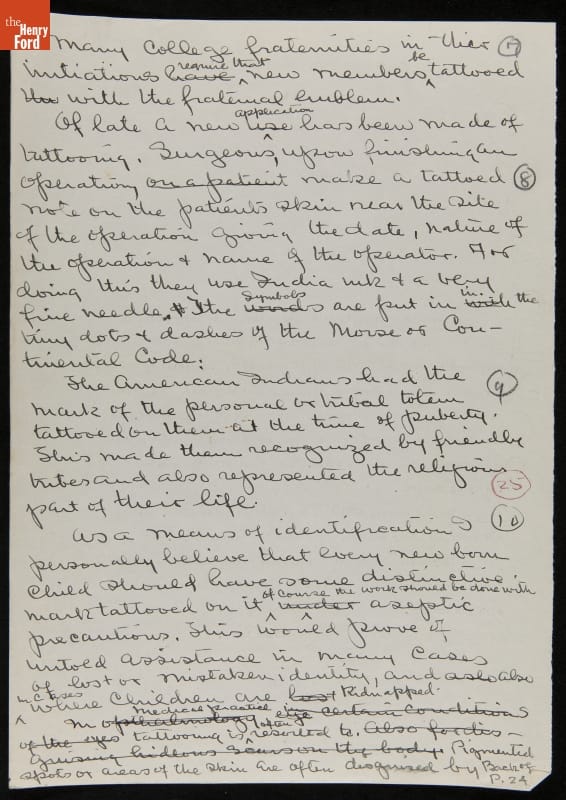 the
Henry
Ford
Many College fraternities in their 7
initiations have require that new members be tattooed
the with the fraternal emblem.
Of late a new use application has been made of
tattooing. Surgeons, upon finishing an
operation, on a patient make a tattoed 8
note on the patients skin near the site
of the operation giving the date, nature of
the operation & name of the operator. For
doing this they use India ink & a very
fine needle. The words symbols are put in with in the
tiny dots & dashes of the Morse or Con-
tinental Code.
The American Indians had the 9
mark of the personal or tribal totem
tattooed on them at the time of puberty.
This made them recognized by friendly
tribes and also represented the religious
part of their life. 25
As a means of identification I 10
personally believe that every new born
child should have some distinctive
mark tattooed on it of course the work should be done with under aseptic
precautions. This would prove of
untold assistance in many cases
of lost or mistaken identity, and also also
in cases where children are lost Kidnapped.
In opthalmology medical practice in certain conditions
of the eyes eye tattooing is often resorted to. Also for dis-
guising hideous scars on the body. Pigmented
spots or areas of the skin are often disguised by Back of
P. 24